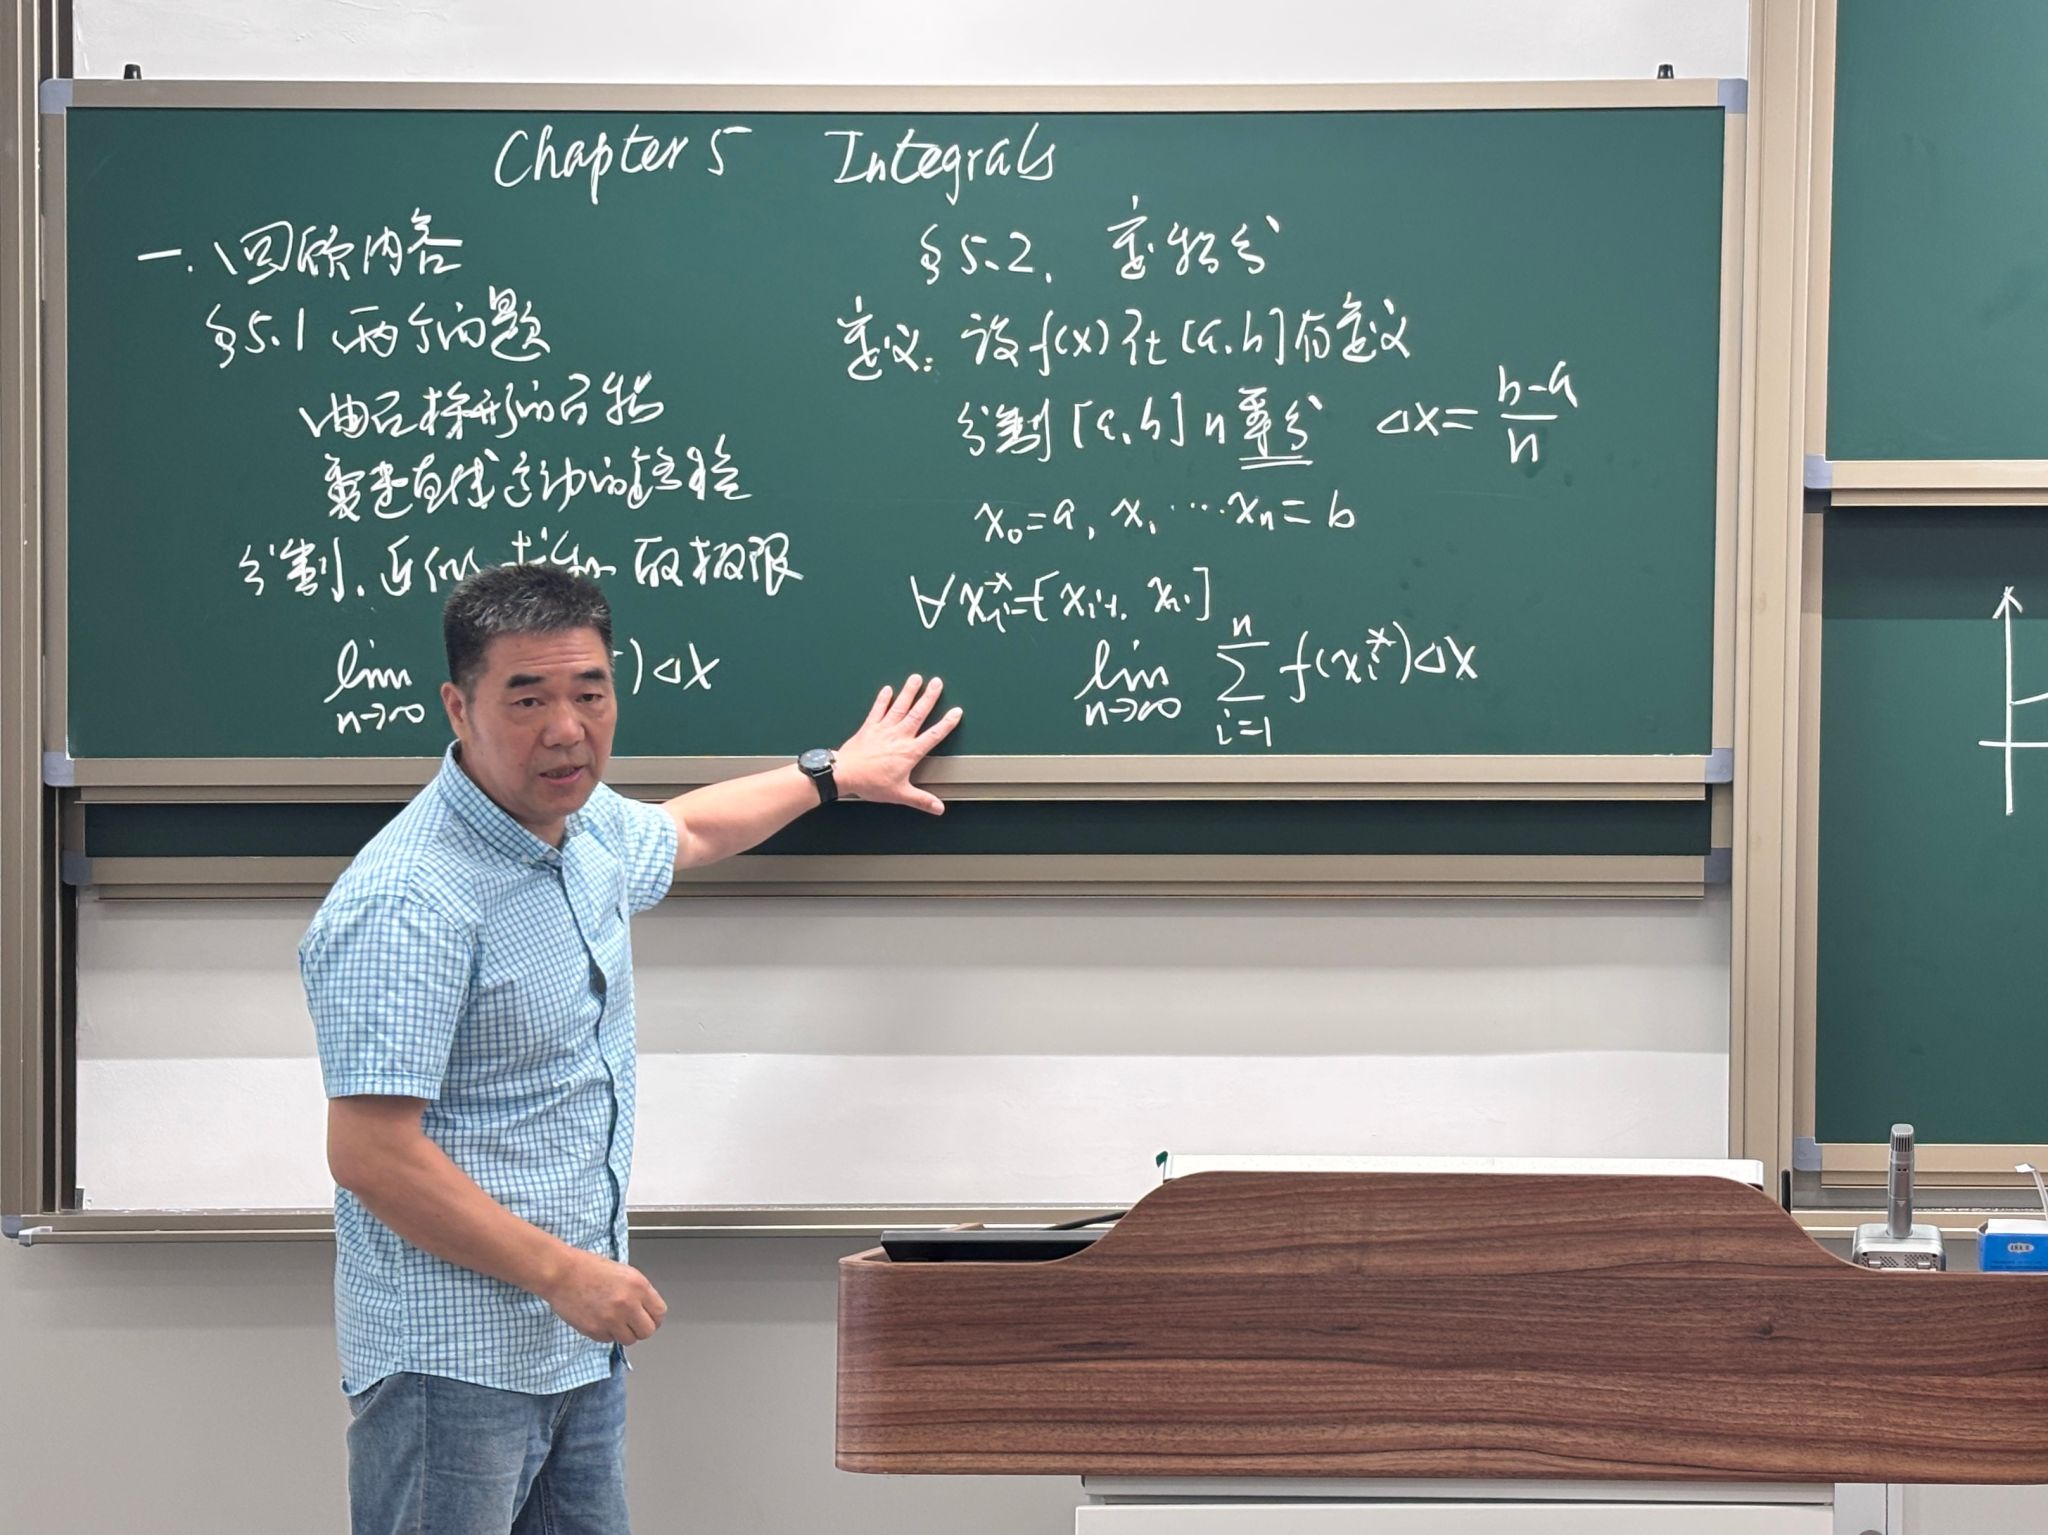 Chapter 5 Integrals
一. 回顾内容
§5.1 两个问题
曲边梯形的面积
变速直线运动的路程
分割. 近似 求和 取极限
lim n→∞ ) △x
§5.2. 定积分
定义: 设 f(x) 在 [a, b] 有定义
分割 [a, b] n 等分 △x = b-a / n
x₀=a, x₁ ··· xₙ = b
∀xᵢ* [xᵢ₋₁, xᵢ]
lim n→∞ n ∑ i=1 f(xᵢ*)△x